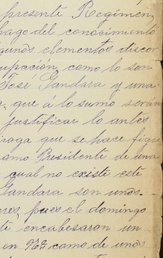 presente Regimen,
hago del conosimiento
gunos elementos disco
upación, como lo son
Jose Gandara y una
s, que á lo sumo serán
justificar lo antes
que se hace figu
omo Presidente de una
qual no existe este
Gandara son unos
pues el domingo
te encabesaron un
un NE. como de unos